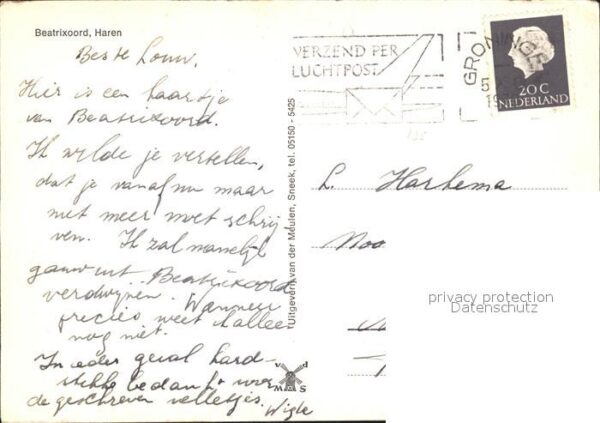 Beatrixoord, Haren
Beste Louw,
Hier is een kaartje
van Beatrixoord.
Ik wilde je vertellen,
dat je vanaf nu maar
niet meer moet schrij
ven. Ik zal namelijk
gauw uit Beatrixoord
verdwijnen. Wanneer
precies weet ik alleen
nog niet.
In ieder geval hard-
stikke bedankt voor
de geschreven velletjes.
Wigle
Uitgeverij van der Meulen, Sneek, tel. 05150 - 5425
v d
M S
VERZEND PER
LUCHTPOST
GRONINGEN
5
20 C
NEDERLAND
L. Harkema
Noo
privacy protection
Datenschutz